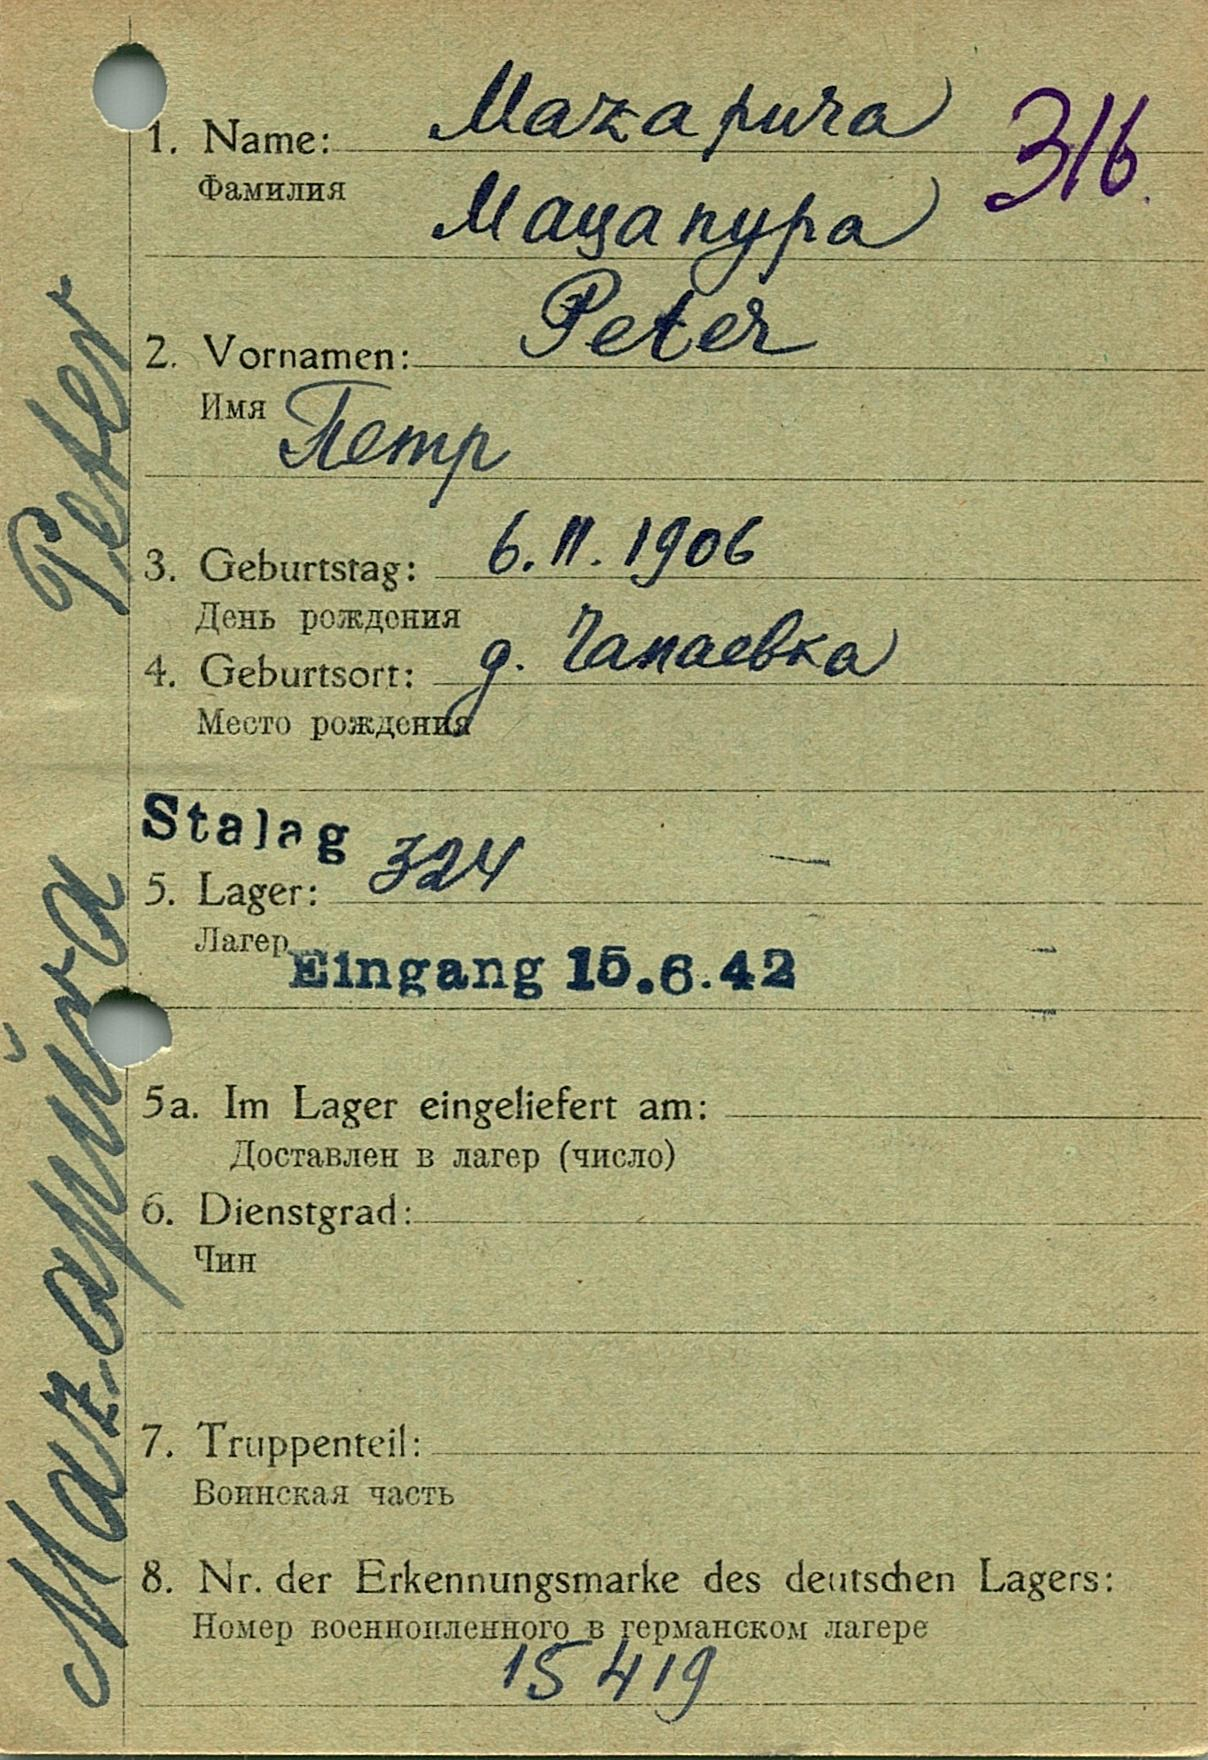 Mazapura
316.
1. Name:
Фамилия
Мацапура
Peter
2. Vornamen:
Имя
Петр
3. Geburtstag: 6. II. 1906
День рождения
4. Geburtsort: д. Чапаевка
Место рождения
Stalag 324
5. Lager:
Лагер
Eingang 15.6.42
5a. Im Lager eingeliefert am:
Доставлен в лагер (число)
6. Dienstgrad:
Чин
7. Truppenteil:
Воинская часть
8. Nr. der Erkennungsmarke des deutschen Lagers:
Номер военнопленного в германском лагере
15419
Mazapŭra Peter